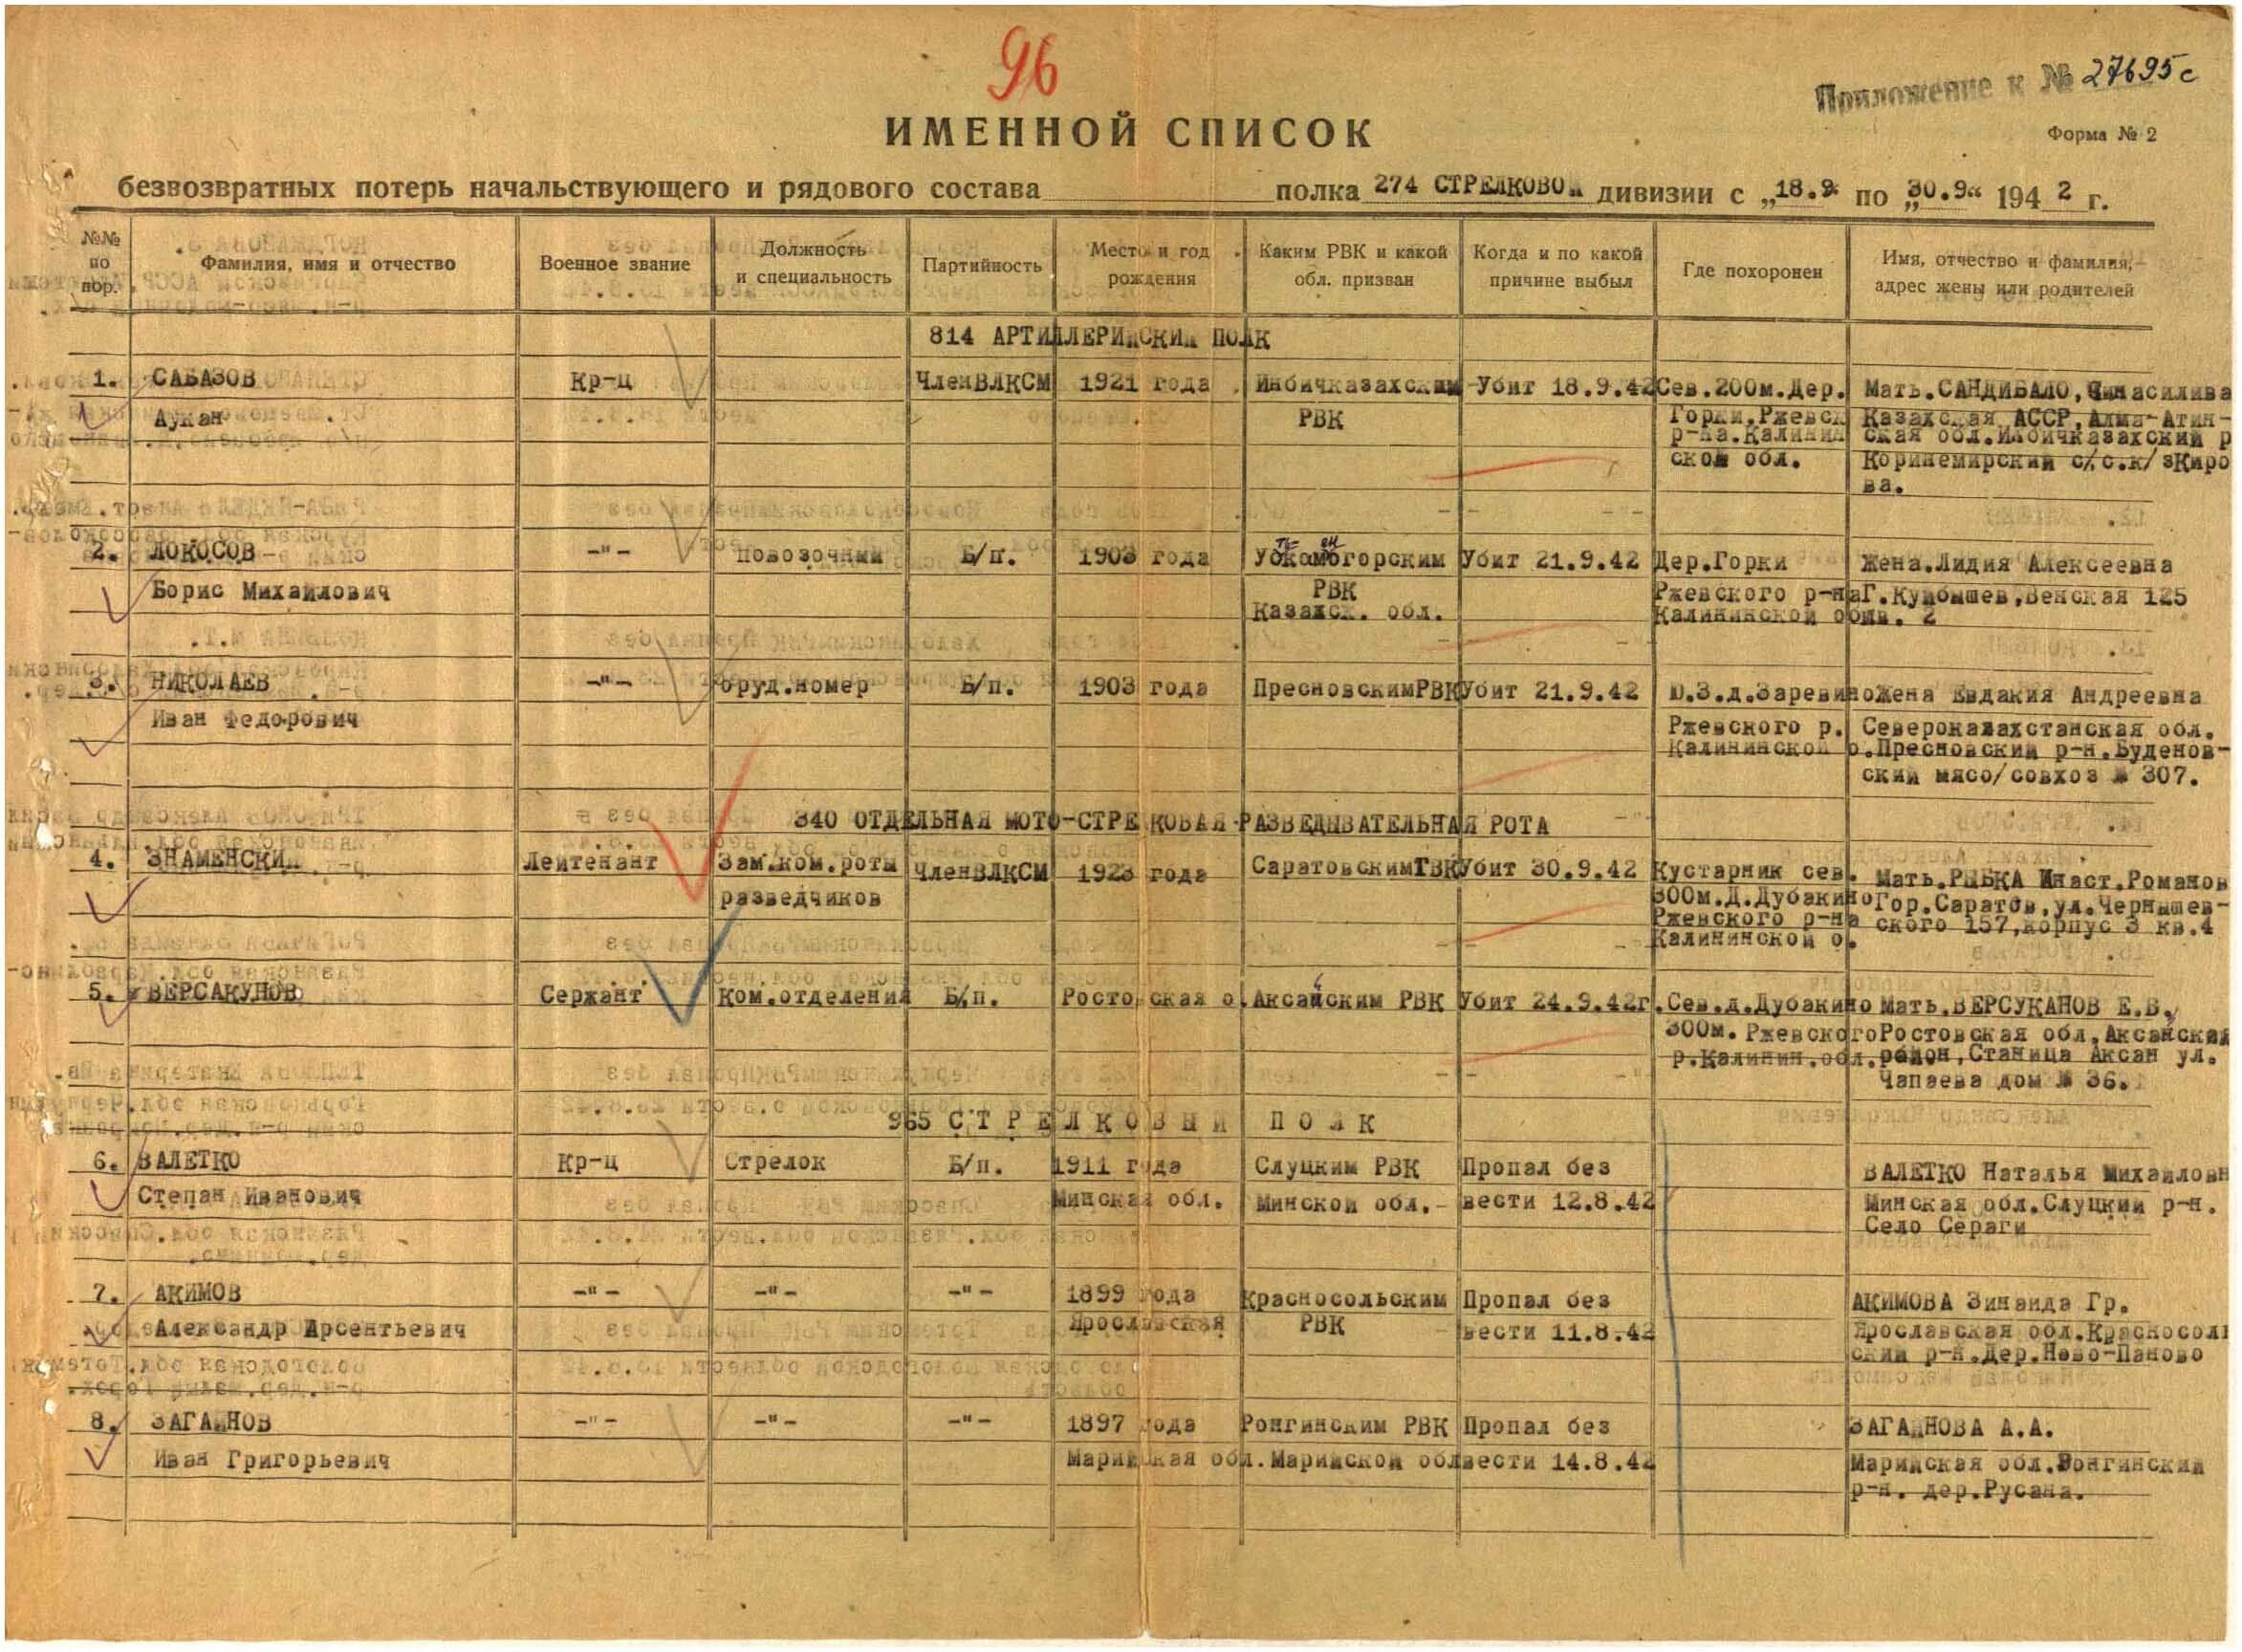 96
Приложение к № 27695с
ИМЕННОЙ СПИСОК
Форма № 2
безвозвратных потерь начальствующего и рядового состава полка 274 СТРЕЛКОВОЙ дивизии с „18.9 по „30.9“ 1942 г.
№№ по пор.
Фамилия, имя и отчество
Военное звание
Должность и специальность
Партийность
Место и год рождения
Каким РВК и какой обл. призван
Когда и по какой причине выбыл
Где похоронен
Имя, отчество и фамилия, адрес жены или родителей
814 АРТИЛЛЕРИЙСКИЙ ПОЛК
1. САБАЗОВ Кр-ц ЧленВЛКСМ 1921 года Инбичказахским Убит 18.9.42 Сев.200м.Дер. Мать.САНДИБАЛО,
Аукан РВК Горки,Ржевск Казахская АССР,Алма-Атин-
р-на.Калинин ская обл.Инбичказахский р
ской обл. Коринемирский с/с.к/зКиро
ва.
2. ЛОКОСОВ -"- повозочный Б/п. 1903 года Усть-каменогорским Убит 21.9.42 Дер.Горки Жена.Лидия Алексеевна
Борис Михайлович РВК Ржевского р-на Г.Куйбышев,Венская 125
Казахск. обл. Калининской о кв. 2
3. НИКОЛАЕВ -"- оруд.номер Б/п. 1903 года ПресновскимРВК Убит 21.9.42 Ю.З.д.Заревино Жена Евдакия Андреевна
Иван Федорович Ржевского р. Североказахстанская обл.
Калининской о. Пресновский р-н.Буденов-
ский мясо/совхоз № 307.
340 ОТДЕЛЬНАЯ МОТО-СТРЕЛКОВАЯ РАЗВЕДЫВАТЕЛЬНАЯ РОТА
4. ЗНАМЕНСКИЙ Лейтенант Зам.ком.роты ЧленВЛКСМ 1923 года СаратовскимГВК Убит 30.9.42 Кустарник сев. Мать.РЫБКА Инаст.Романов
разведчиков 300м.Д.Дубакино Гор.Саратов,ул.Чернышев-
Ржевского р-на ского 157,корпус 3 кв.4
Калининской о.
5. ВЕРСАКУНОВ Сержант Ком.отделения Б/п. Ростовская о. Аксайским РВК Убит 24.9.42г. Сев.д.Дубакино Мать.ВЕРСУКАНОВ Е.В.
300м. Ржевского Ростовская обл.Аксайская
р.Калинин.обл. район,Станица Аксай ул.
Чапаева дом № 36.
965 СТРЕЛКОВЫЙ ПОЛК
6. ВАЛЕТКО Кр-ц Стрелок Б/п. 1911 года Слуцким РВК Пропал без ВАЛЕТКО Наталья Михайловн
Степан Иванович Минская обл. Минской обл.- вести 12.8.42 Минская обл.Слуцкий р-н.
Село Сераги
7. АКИМОВ -"- -"- -"- 1899 года Красносольским Пропал без АКИМОВА Зинаида Гр.
Александр Арсентьевич Ярославская РВК вести 11.8.42 Ярославская обл.Красносоль
ский р-н.Дер.Ново-Паново
8. ЗАГАЙНОВ -"- -"- -"- 1897 года Ронгинским РВК Пропал без ЗАГАЙНОВА А.А.
Иван Григорьевич Марийская обл. Марийской обл вести 14.8.42 Марийская обл.Ронгинский
р-н. дер.Русана.